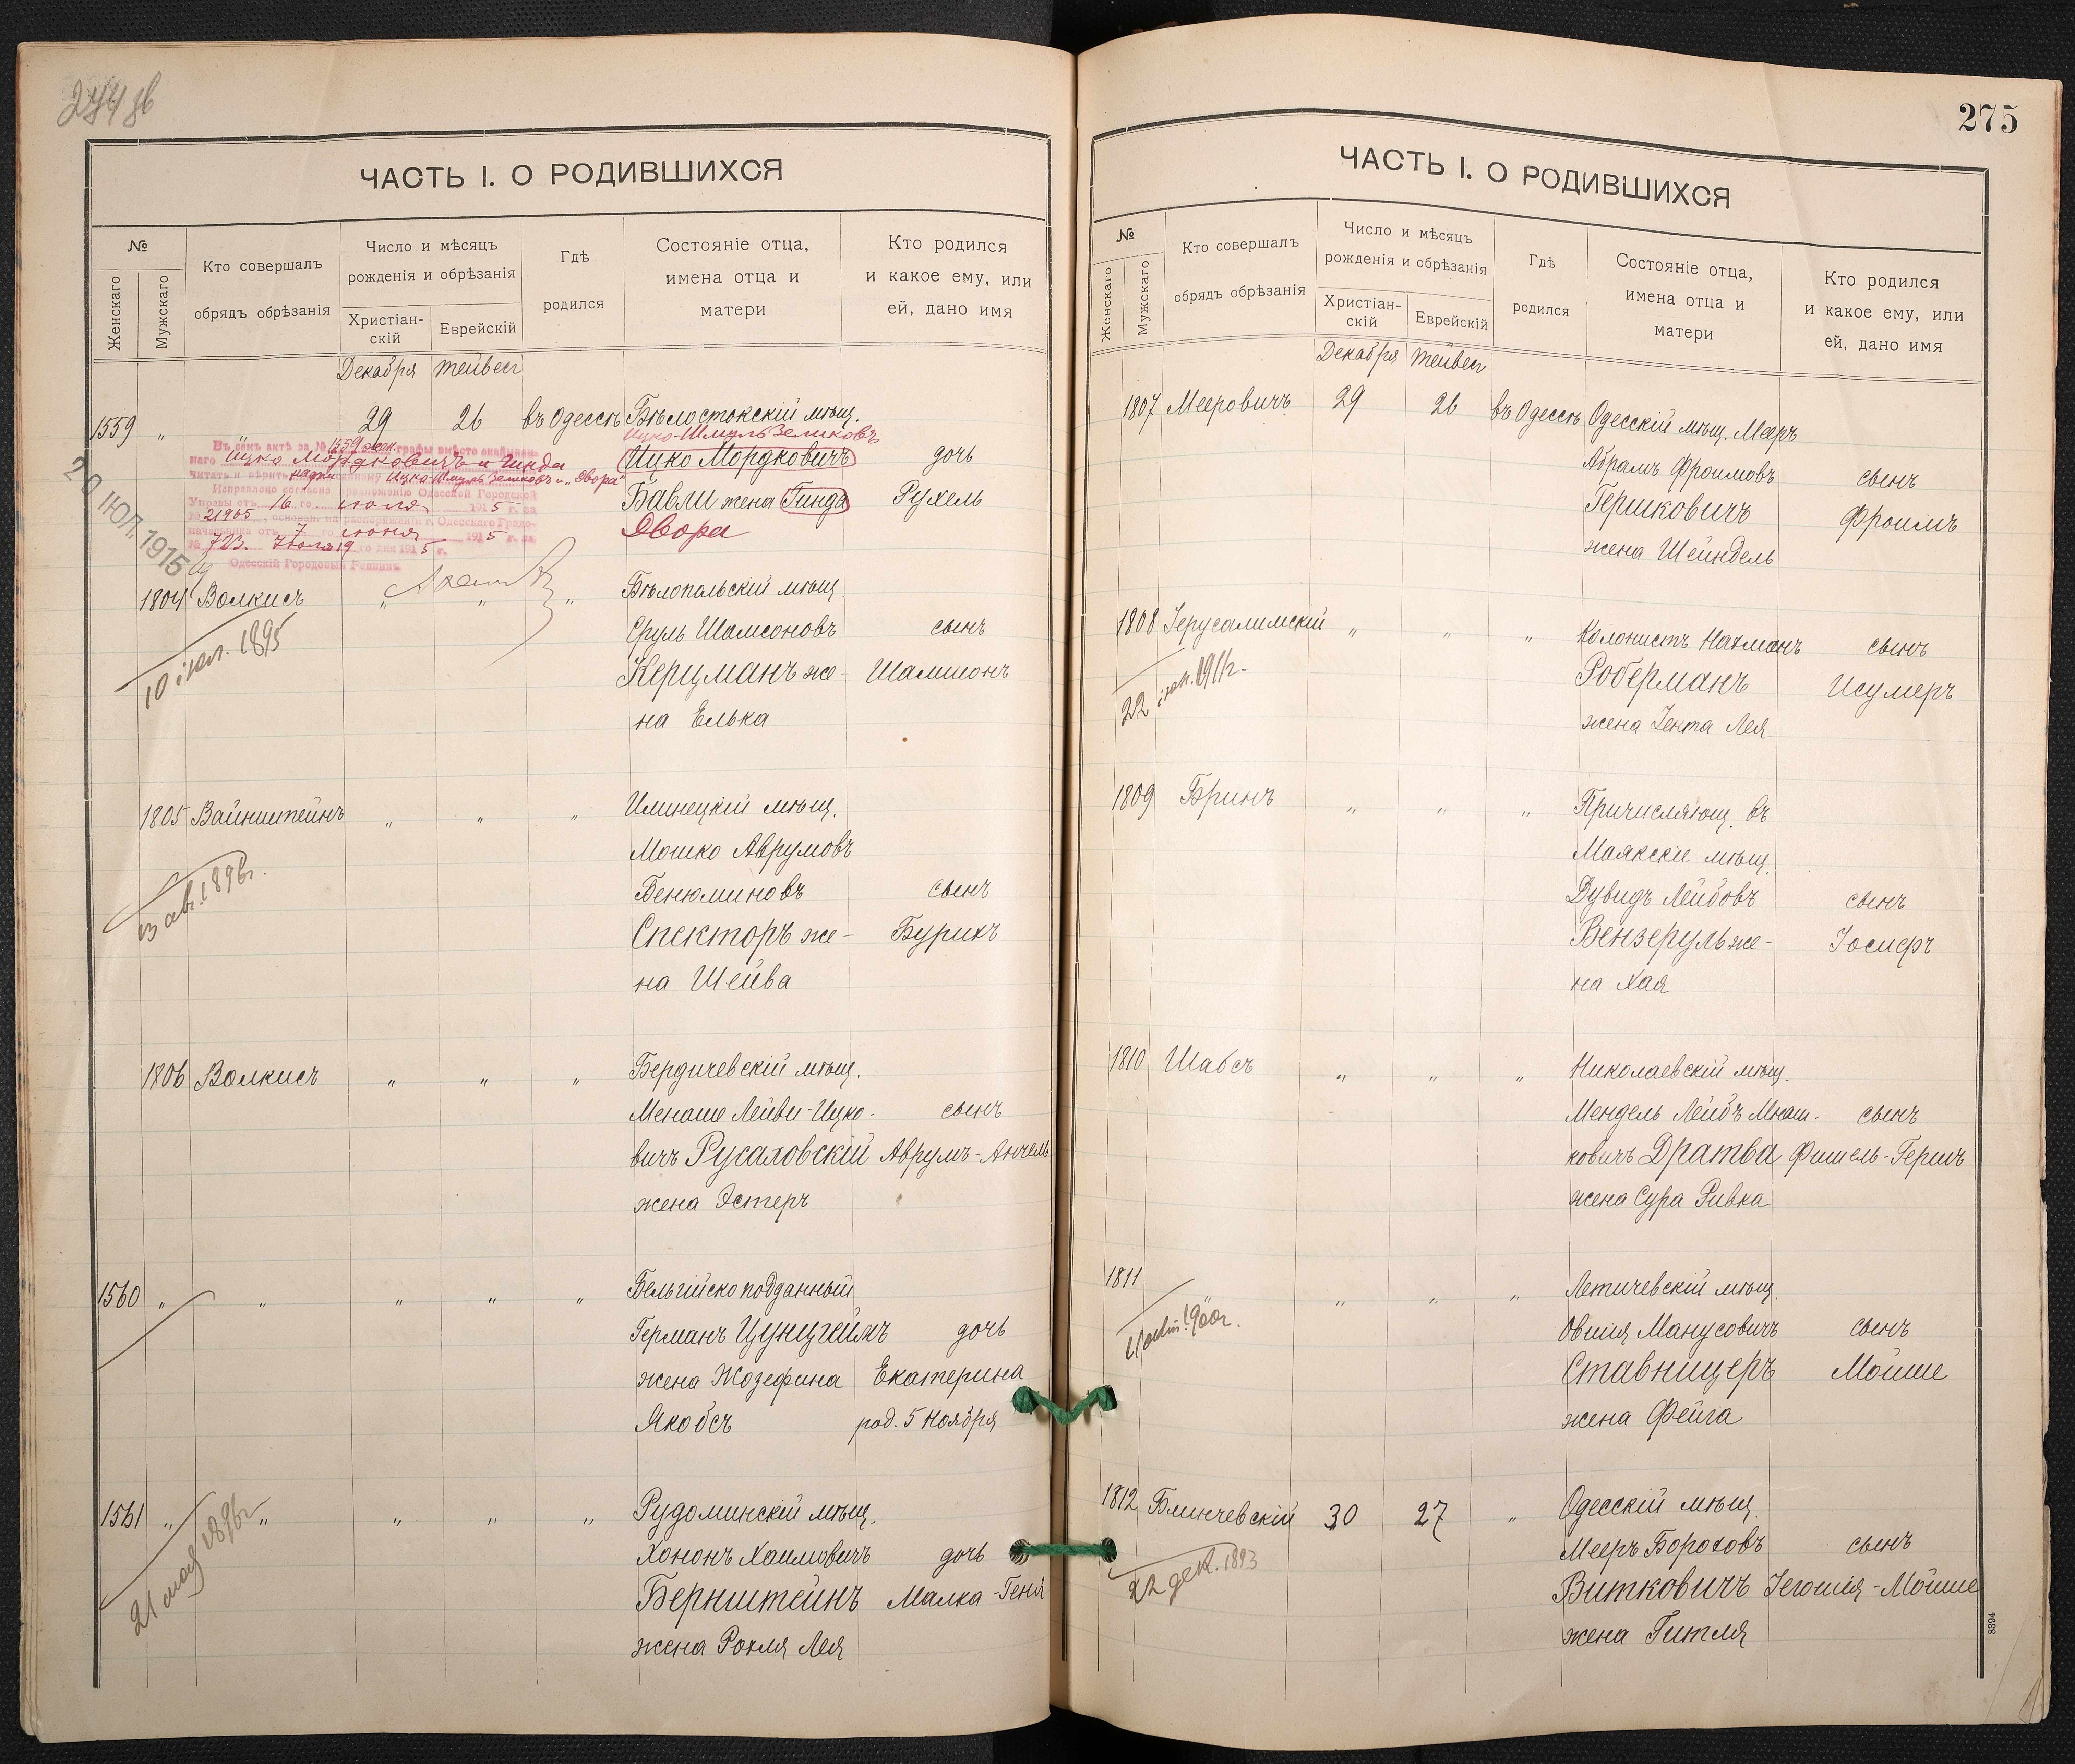 274 об
ЧАСТЬ I. О РОДИВШИХСЯ
№
Женскаго
Мужскаго
Кто совершалъ
обрядъ обрѣзанія
Число и мѣсяцъ
рожденія и обрѣзанія
Христіан-
скій
Еврейскій
Гдѣ
родился
Состояніе отца,
имена отца и
матери
Кто родился
и какое ему, или
ей, дано имя
Декабря Тейвесъ
1559 " " 29 26 въ Одессѣ Бѣлостокскій мѣщ.
Ицко-Шмуль Зелковъ
Ицко Мордковичъ дочь
Бавли жена Гинда Рухель
Двора
Въ семъ актѣ за № 1559 жен. графы вмѣсто
наго Ицко Мордковичъ и Гинда
читать и вѣрить Ицко-Шмуль Зелковъ и „Двора"
Исправлено согласно предложенію Одесской Городской
Управы отъ 16 го іюля 1915 г. за
№ 21965, основан. на распоряженіи г. Одесскаго Градо-
начальника отъ 7 го іюня 1915 г. за
№ 723. Іюля 19 го дня 1915 г.
Одесскій Городовый Раввинъ
20 ІЮЛ. 1915
1804 Волкисъ " " " Бѣлопольскій мѣщ
Сруль Шамсоновъ сынъ
Керцманъ же- Шамшонъ
на Елька
10 іюл. 1895
1805 Вайнштейнъ " " " Илинецкій мѣщ.
Мошко Аврумовъ
Бенюминовъ сынъ
Спекторъ же- Бурихъ
на Шейва
13 авг. 1896г.
1806 Волкисъ " " " Бердичевскій мѣщ.
Менаше Лейви-Ицко- сынъ
вичъ Русаховскій Аврумъ-Анчель
жена Эстеръ
1560 " " " " " Бельгійско подданный
Германъ Цунцгеймъ дочь
жена Жозефина Екатерина
Якобсъ род. 5 Ноября
1561 " " " " " Рудоминскій мѣщ.
Хононъ Хаимовичъ дочь
Бернштейнъ Малка-Геня
жена Рохля Лея
21 мая 1896г
275
ЧАСТЬ I. О РОДИВШИХСЯ
№
Женскаго
Мужскаго
Кто совершалъ
обрядъ обрѣзанія
Число и мѣсяцъ
рожденія и обрѣзанія
Христіан-
скій
Еврейскій
Гдѣ
родился
Состояніе отца,
имена отца и
матери
Кто родился
и какое ему, или
ей, дано имя
Декабря Тейвесъ
1807 Мееровичъ 29 26 въ Одессѣ Одесскій мѣщ. Мееръ
Абрамъ Фроимовъ сынъ
Гершковичъ Фроимъ
жена Шейндель
1808 Іерусалимскій " " " Колонистъ Нахманъ сынъ
Роберманъ Исумеръ
жена Іента Лея
22 1911г.
1809 Бринъ " " " Причисляющ. въ
Маякскіе мѣщ.
Дувидъ Лейбовъ сынъ
Вензеруль же- Іосифъ
на Хая
1810 Шабсъ " " " Николаевскій мѣщ.
Мендель Лейбъ Мнаш- сынъ
ковичъ Дратва Фишель-Гершъ
жена Сура Ривка
1811 " " " Летичевскій мѣщ.
Овшія Манусовичъ сынъ
Ставницеръ Мойше
жена Фейга
11 1900г.
1812 Блинчевскій 30 27 " Одесскій мѣщ.
Мееръ Бороховъ сынъ
Витковичъ Іегошія-Мойше
жена Гитля
22 дек. 1893
8394